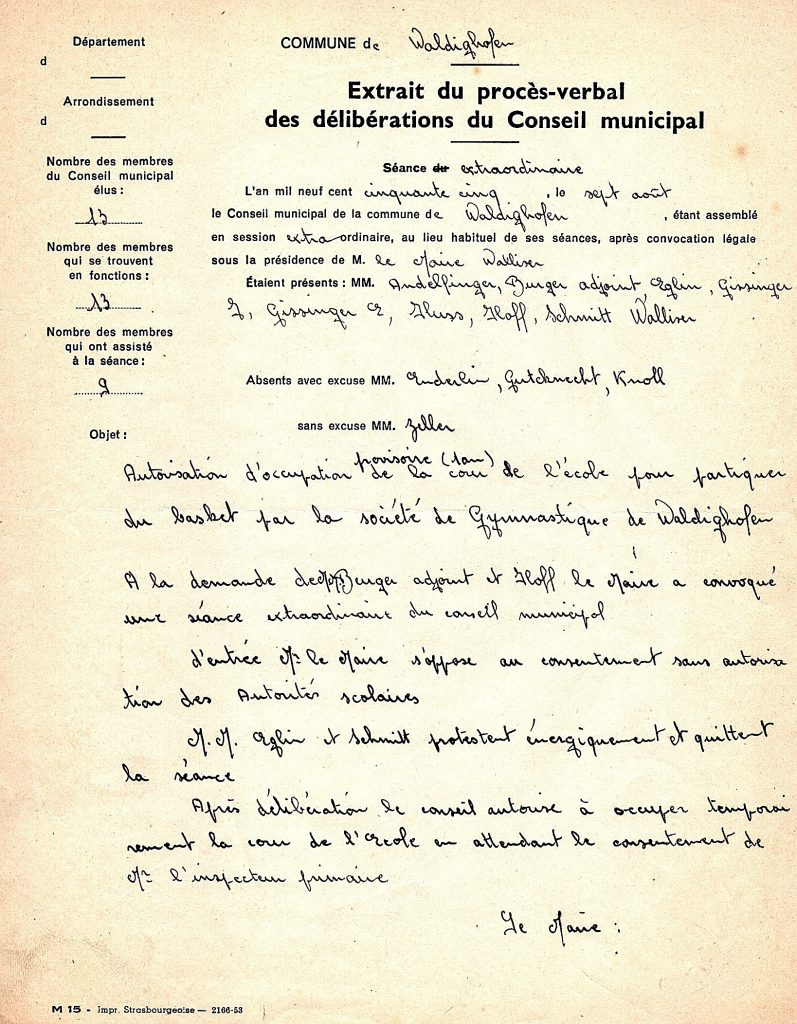 Département
d
Arrondissement
d
Nombre des membres
du Conseil municipal
élus :
13
Nombre des membres
qui se trouvent
en fonctions :
13
Nombre des membres
qui ont assisté
à la séance :
9
COMMUNE de Waldighofen
Extrait du procès-verbal
des délibérations du Conseil municipal
Séance du extraordinaire
L'an mil neuf cent cinquante cinq, le sept août
le Conseil municipal de la commune de Waldighofen, étant assemblé
en session extra ordinaire, au lieu habituel de ses séances, après convocation légale
sous la présidence de M. le Maire Walliser
Étaient présents : MM. Andelfinger, Burger adjoint Eglin, Gissinger
J, Gissinger E, Huss, Hoff, Schmitt Walliser
Absents avec excuse MM. Enderlin, Gutcknecht, Knoll
sans excuse MM. Zeller
Objet :
provisoire (1 an)
Autorisation d'occupation de la cour de l'école pour partiquer
du basket par la société de Gymnastique de Waldighofen
A la demande de MM. Burger adjoint et Hoff le Maire a convoqué
une séance extraordinaire du conseil municipal
d'entrée Mr le Maire s'oppose au consentement sans autorisa
tion des Autorités scolaires
M.M. Eglin et Schmitt protestent énergiquement et quittent
la séance
Après délibération le conseil autorise à occuper temporai
rement la cour de l'Ecole en attendant le consentement de
Mr l'inspecteur primaire
Le Maire :
M 15 - Impr. Strasbourgeoise — 2166-53